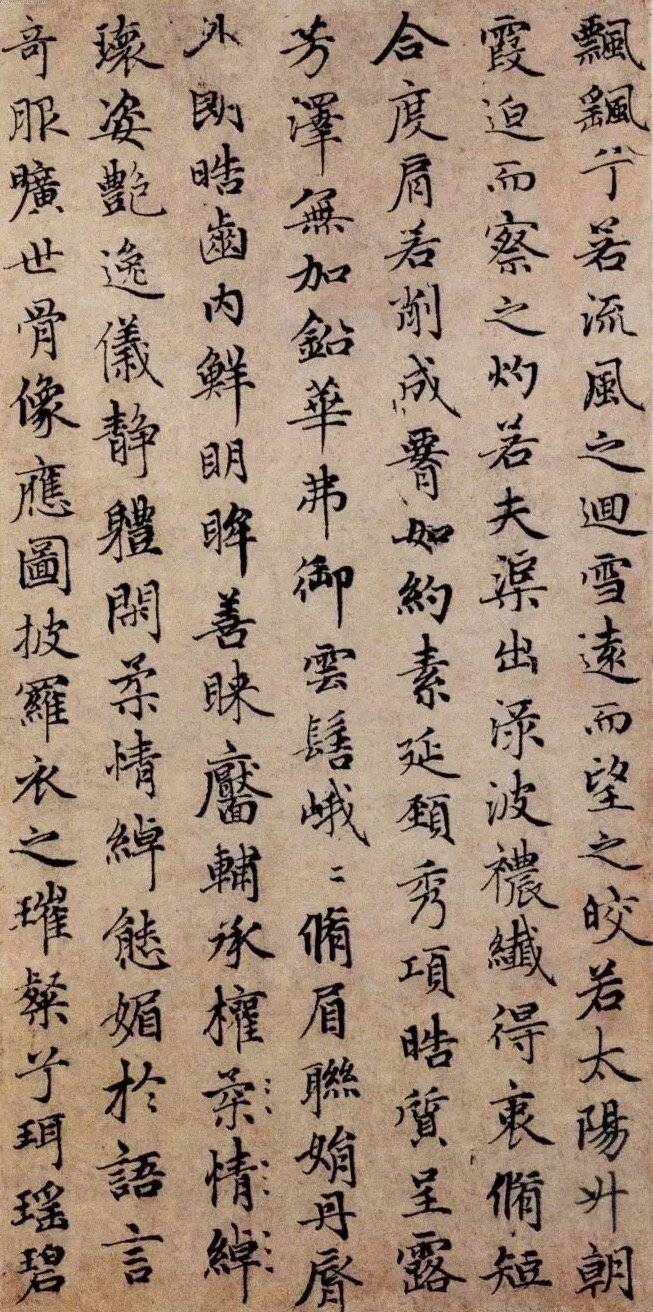 飄颻兮若流風之迴雪遠而望之晈若太陽升朝
霞迫而察之灼若夫渠出渌波襛纖得衷脩短
合度肩若削成腰如約素延頸秀項晧質呈露
芳澤無加鉛華弗御雲髻峨〻脩眉聯娟丹脣
外朗晧齒内鮮明眸善睞靨輔承權柔情綽
瓌姿艷逸儀静軆閑柔情綽態媚於語言
奇服曠世骨像應圖披羅衣之璀粲兮珥瑶碧